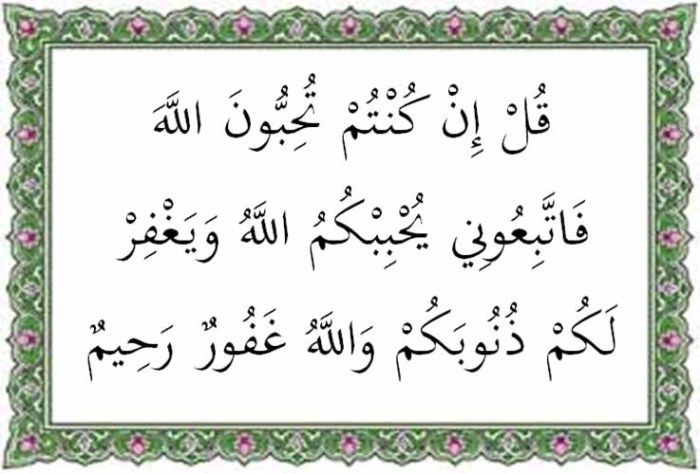 قُلْ إِنْ كُنْتُمْ تُحِبُّونَ اللَّهَ
فَاتَّبِعُونِي يُحْبِبْكُمُ اللَّهُ وَيَغْفِرْ
لَكُمْ ذُنُوبَكُمْ وَاللَّهُ غَفُورٌ رَحِيمٌ